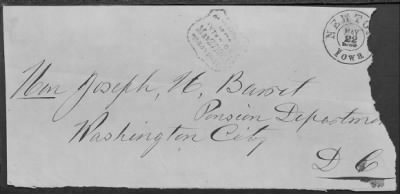 NEWTO
MAY
22
IOWA
Hon Joseph, H, Barrit
Pension Departme
Washington City
D C